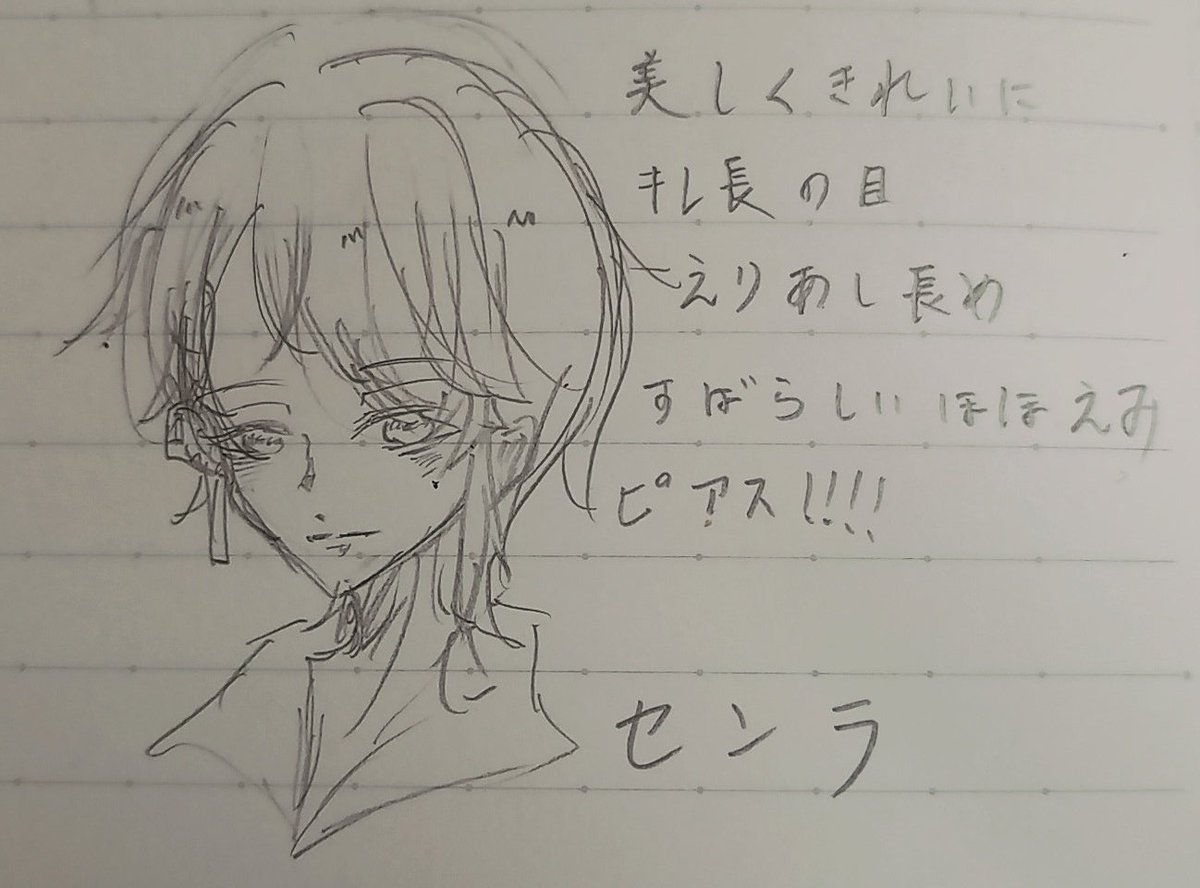 美しくきれいに
キレ長の目
えりあし長め
すばらしいほほえみ
ピアス!!!!
センラ